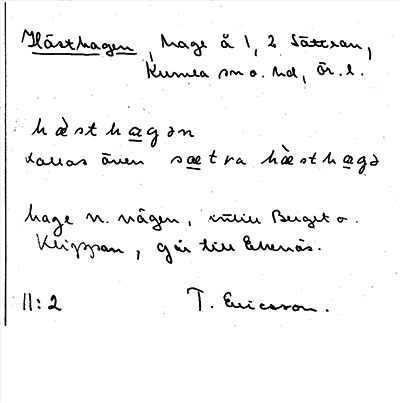 Hästhagen, hage å 1, 2 Sättran,
Kumla sn o. hd, Ör. l.
hὰ̀sthagən
kallas även sætra hὰ̀sthagə
hage n. vägen, intill Berget o.
Klippan, går till Ekenäs.
11:2 T. Ericsson.